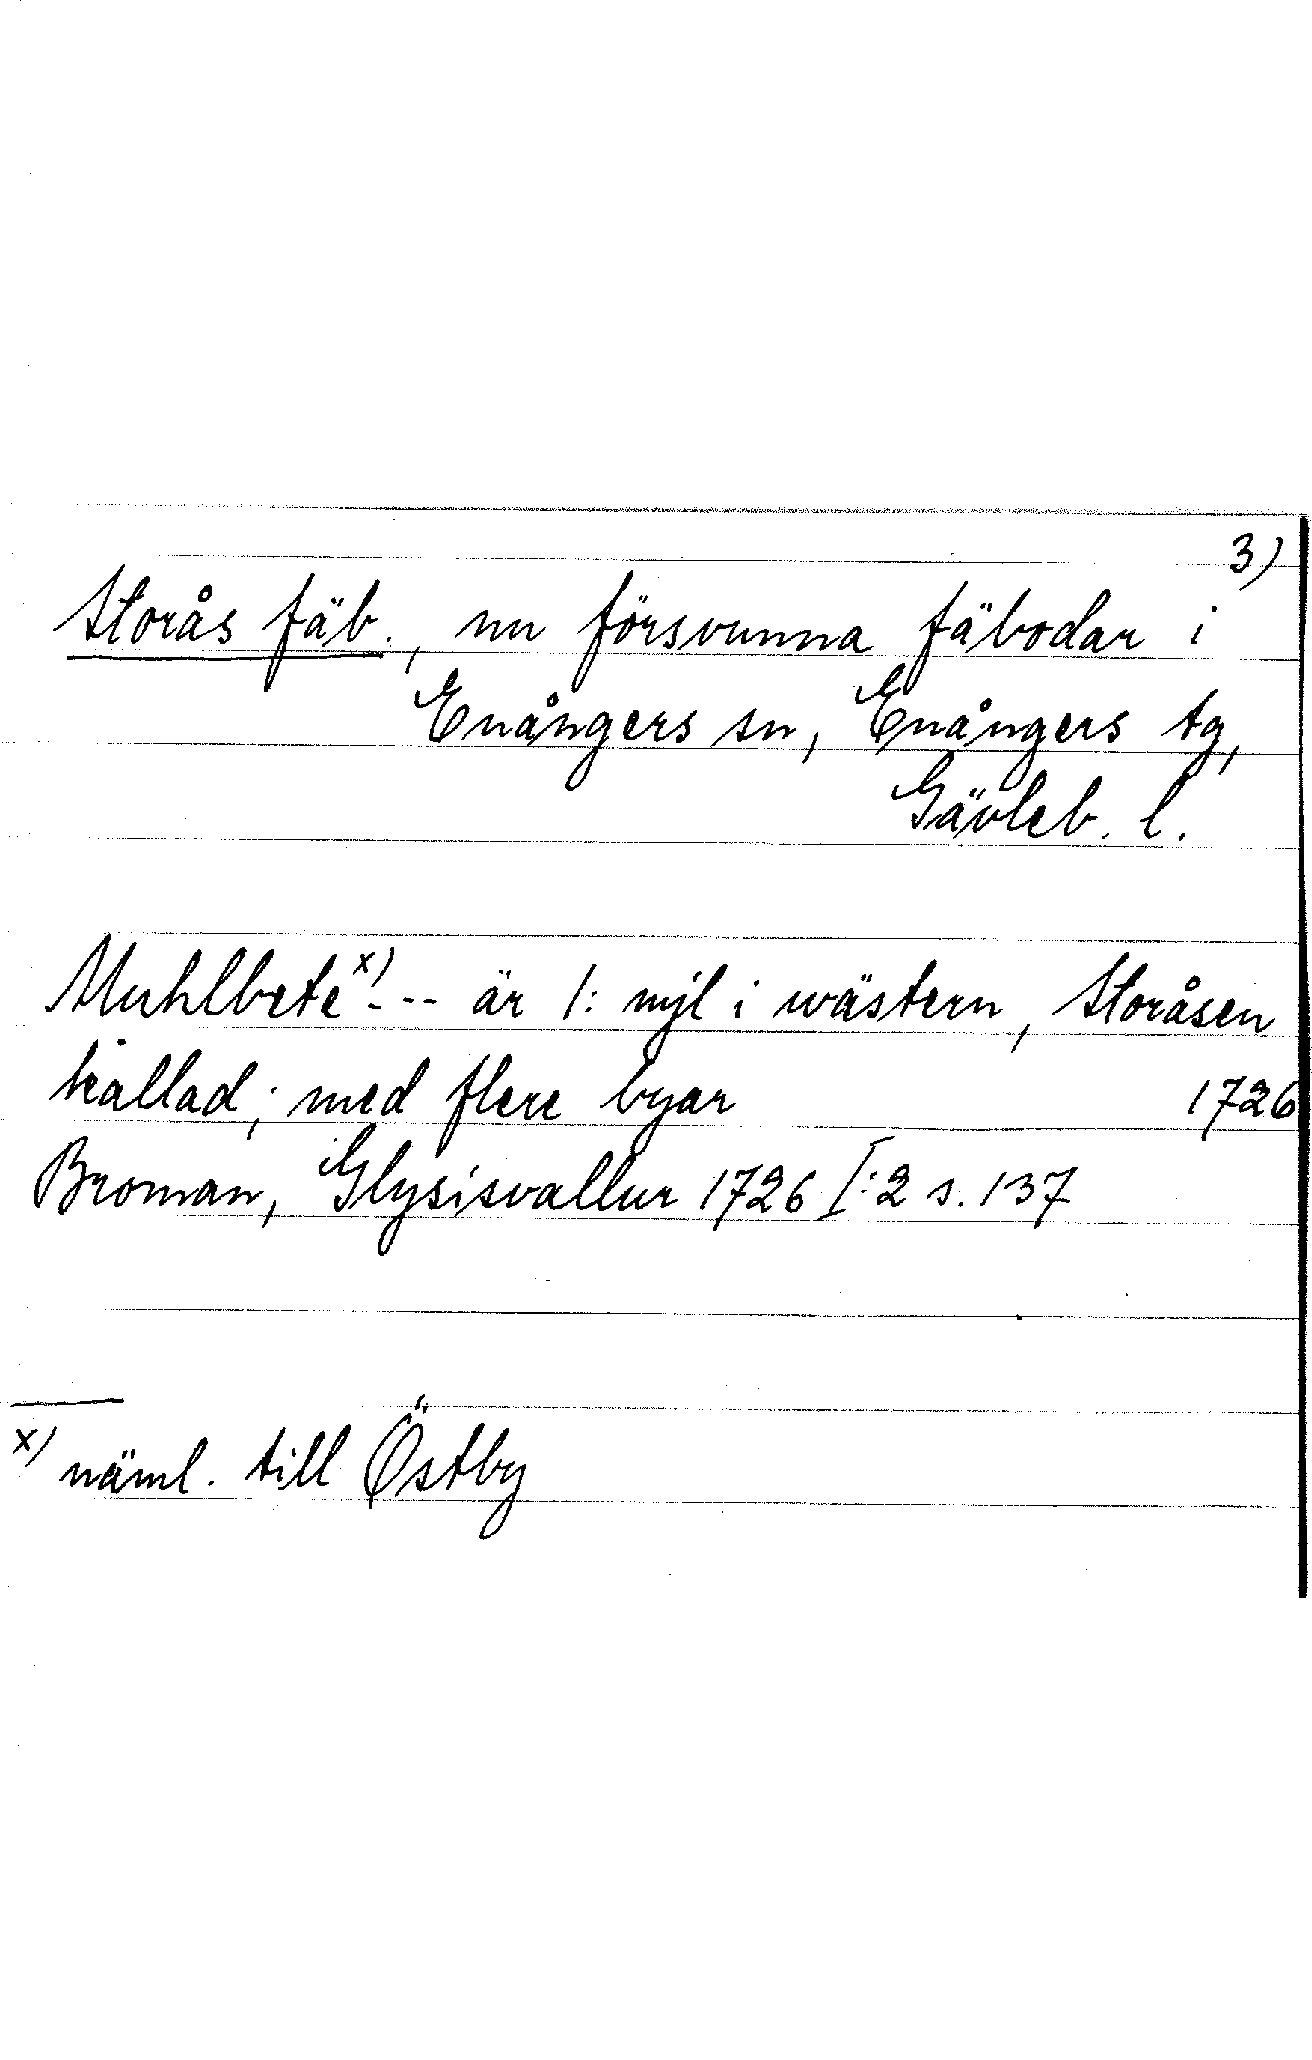 3)
Storås fäb., nu försvunna fäbodar i
Enångers sn, Enångers tg,
Gävleb. l.
Muhlbete x) --- är 1: mjl i wästern, Storåsen
kallad; med flere byar 1726
Broman, Glysisvallur 1726 I:2 s. 137
x) näml. till Östby